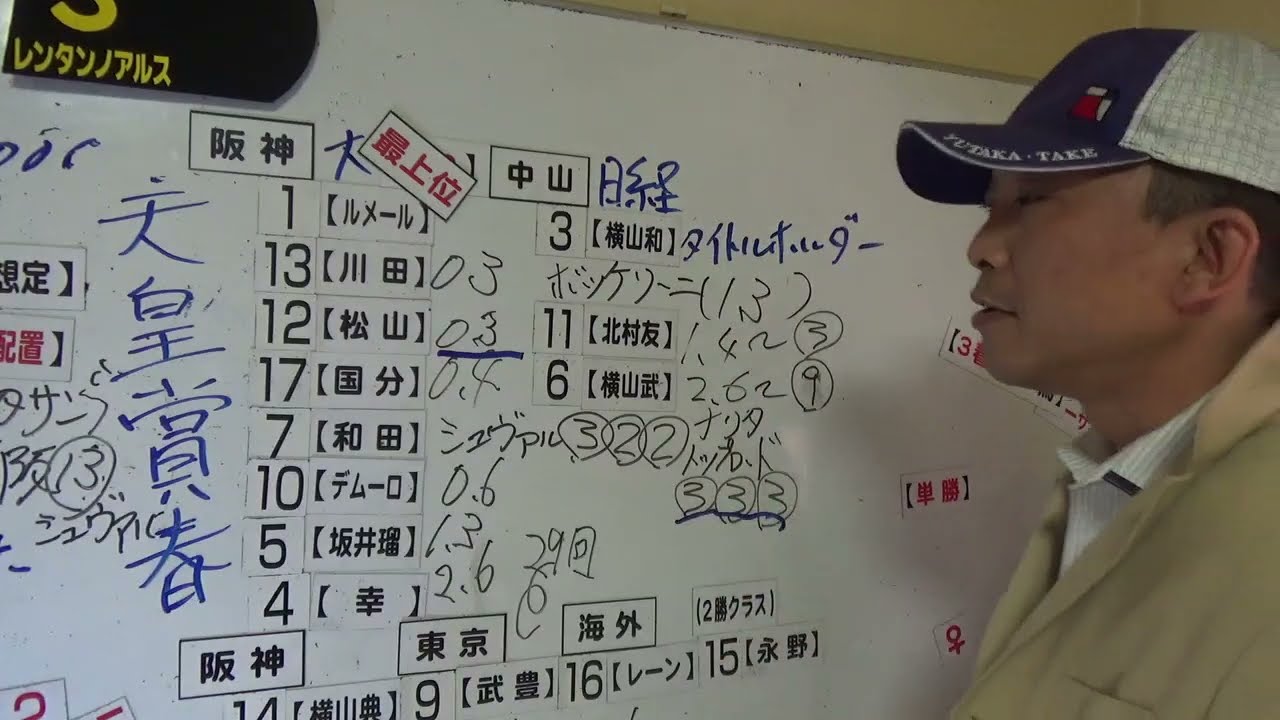 レンタンノアルス
阪神 大 最上位 】
中山 日経
天皇賞春
1【ルメール】
13【川田】0.3
12【松山】0.3
17【国分】0.4
7【和田】シュヴァル③②②
10【デムーロ】0.6
5【坂井瑠】1.3
4【幸】2.6
29回
3【横山和】タイトルホルダー
ボッケリーニ(1.3)
11【北村友】1.4~③
6【横山武】2.6~⑨
ナリタ
トップロード
③③③
想定】
配置】
阪⑬
シュヴァル
【単勝】
阪神
14【横山典】
東京
9【武豊】
海外
16【レーン】
(2勝クラス)
15【永野】
YUTAKA・TAKE